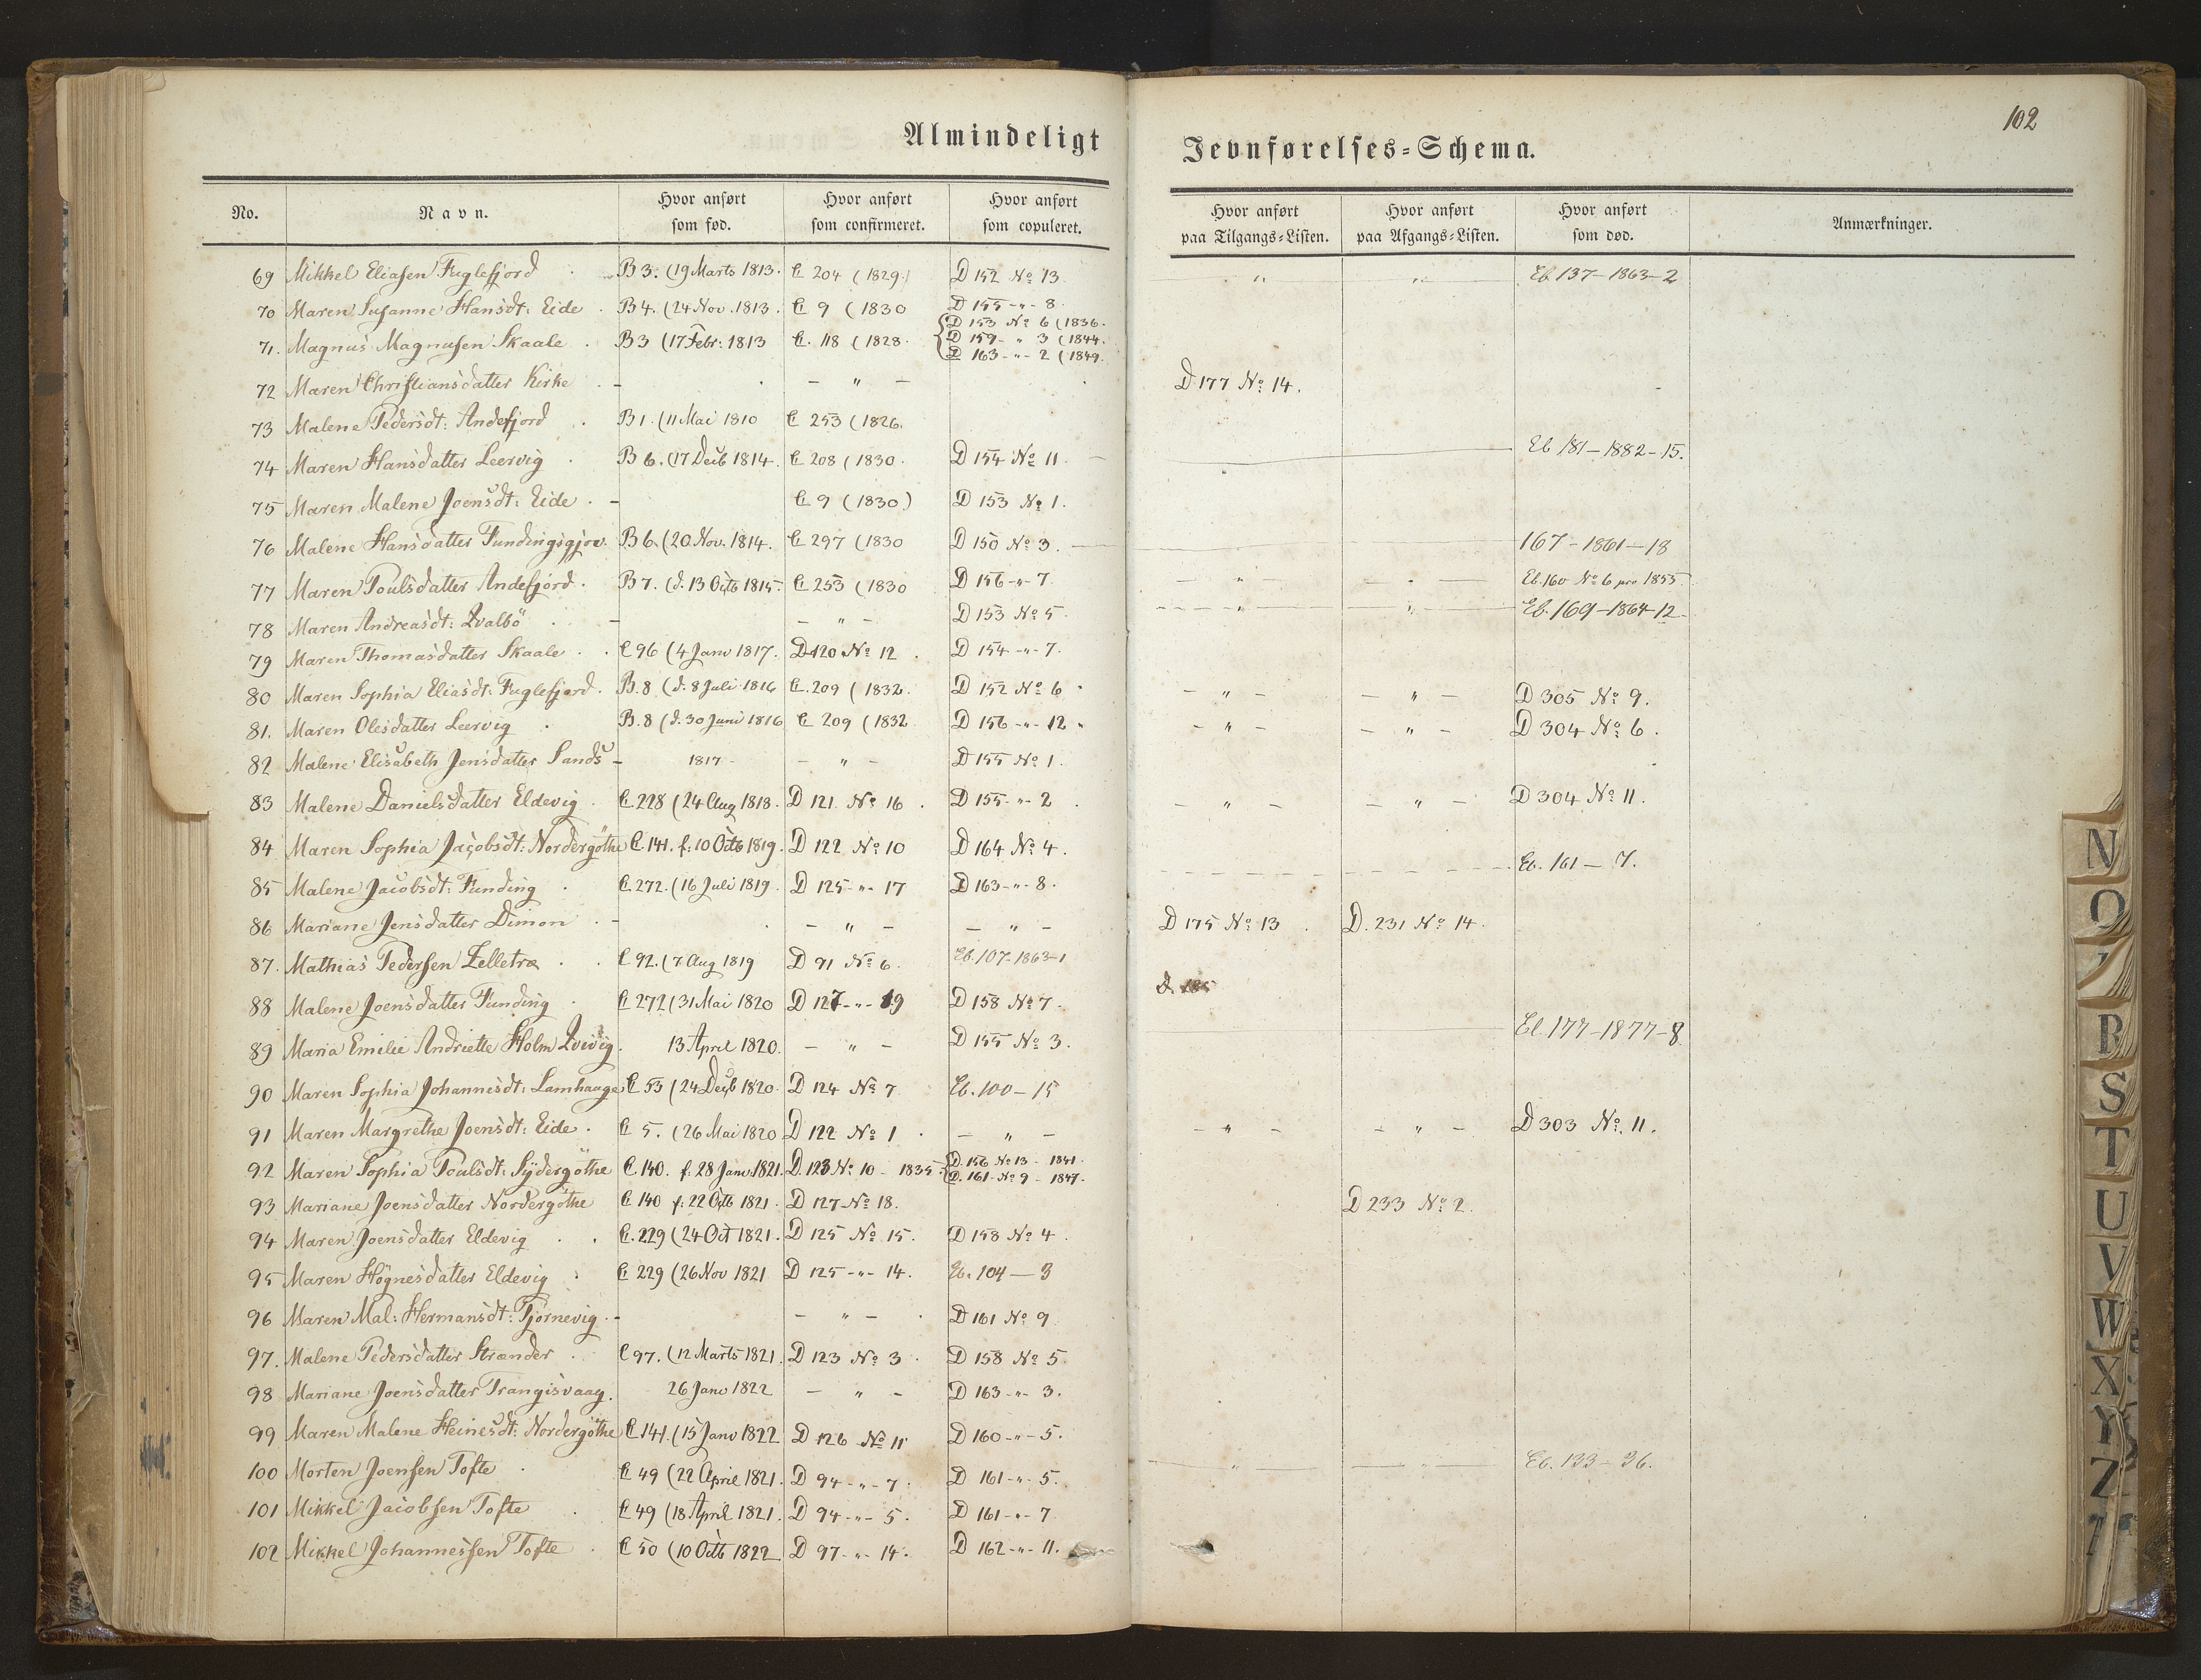 102
Almindeligt Jevnførelses=Schema.
No. Navn. Hvor anført som fød. Hvor anført som confirmeret. Hvor anført som copuleret. Hvor anført paa Tilgangs=Listen. Hvor anført paa Afgangs=Listen. Hvor anført som død. Anmærkninger.
69 Mikkel Eliasen Fuglefjord B 3. (19 Marts 1813. C 204 (1829.) D 152 No 13. " " Eb 137-1863-2
70 Maren Susanne Hansdt: Eide B 4. (24 Nov. 1813. C 9 (1830 D 155 -"- 8.
71. Magnus Magnusen Skaale B 3 (17 Febr: 1813 C. 118 (1828. {D 153 No 6 (1836.
D 159- " 3 (1844.
D 163 -"- 2 (1849.
72 Maren Christiansdatter Kirke - - " - D 177 No 14.
73 Malene Pedersdt: Andefjord B 1. (11 Mai 1810 C 253 (1826.
74 Maren Hansdatter Leervig B 6. (17 Decb 1814. C 208 (1830. D 154 No 11. Eb 181-1882-15.
75 Maren Malene Joensdt: Eide - C 9 (1830) D 153 No 1.
76 Malene Hansdatter Fundingsgjov. B 6. (20 Nov. 1814. C 297 (1830 D 150 No 3. 167-1861-18
77 Maren Poulsdatter Andefjord. B 7. (d. 13 Octb 1815. C 253 (1830 D 156 -"- 7. - " - - " - Eb. 160 No 6 pro 1855.
78 Maren Andreasdt: Qvalbö - - " - D 153 No 5. " " Eb. 169-1864-12
79 Maren Thomasdatter Skaale C 96 (4 Janv 1817. D 120 No 12. D 154 -"- 7.
80 Maren Sophia Eliasdt: Fuglefjord. B. 8 (d. 8 Juli 1816 C. 209 (1832. D 152 No 6 - " - - " - D 305 No 9.
81. Maren Olesdatter Leervig B. 8 (d. 30 Juni 1816 C 209 (1832 D 156 -"- 12. - " - - " - D 304 No 6.
82 Malene Elisabeth Jensdatter Sands - 1817 - - " - D 155 No 1.
83 Malene Danielsdatter Eldevig C. 228 (24 Aug 1818. D 121 No 16. D 155 -"- 2. - " - - " - D 304 No 11.
84 Maren Sophia Jacobsdt: Nordergöthe C. 141. f: 10 Octb 1819. D 122 No 10 D 164 No 4. Eb. 161-7.
85 Malene Jacobsdt: Funding C. 272. (16 Juli 1819. D 125 -"- 17 D 163 -"- 8.
86 Mariane Jensdatter Dimon - - " - - " - D 175 No 13. D. 231 No 14.
87. Mathias Pedersen Zelletræ C 92. (7 Aug 1819 D 91 No 6. Eb. 107-1863-1
88 Malene Joensdatter Funding C 272 (31 Mai 1820 D 127 -"- 19 D 158 No 7.
89 Maria Emilie Andriette Holm Qvivig. 13 April 1820. - " - D 155 No 3. El. 177-1877-8
90 Maren Sophia Johannesdt: Lamhauge C 53 (24 Decb 1820. D 124 No 7 Eb. 100-15
91 Maren Margrethe Joensdt: Eide. C 5. (26 Mai 1820 D 122 No 1 - " - - " - - " - D 303 No. 11.
92 Maren Sophia Poulsdt: Sydergöthe C 140. f: 28 Janv 1821. D. 123 No 10 - 1835. {D. 156 No 13 - 1841.
D. 161. No 9 - 1847.
93 Mariane Joensdatter Nordergöthe C 140 f: 22 Octb 1821. D 127 No 18. D 233 No 2.
94 Maren Joensdatter Eldevig C. 229 (24 Oct 1821. D 125 No 15. D 158 No 4.
95 Maren Högnesdatter Eldevig C 229 (26 Nov 1821 D 125 -"- 14. Eb. 104-3
96 Maren Mal: Hermansdt: Tjörnevig. - - " - D 161 No 9
97. Malene Pedersdatter Strænder C 97. (12 Marts 1821. D 123 No 3. D 158 No 5.
98 Mariane Joensdatter Trangisvaag. 26 Janv 1822 - " - D 163 -"- 3.
99 Maren Malene Heinesdt: Nordergöthe C 141. (15 Janv 1822 D 126 No 11 D 160 -"- 5.
100 Morten Joensen Tofte C 49 (22 April 1821. D 94 -"- 7. D 161 -"- 5. " " Eb. 133-36.
101 Mikkel Jacobsen Tofte C 49 (18 April 1821. D 94 -"- 5. D 161 -"- 7
102 Mikkel Johannessen Tofte C 50 (10 Octb 1822 D 97 -"- 14. D 162 -"- 11.
N
O
R
S
T
U
V
W
X
Y
Z